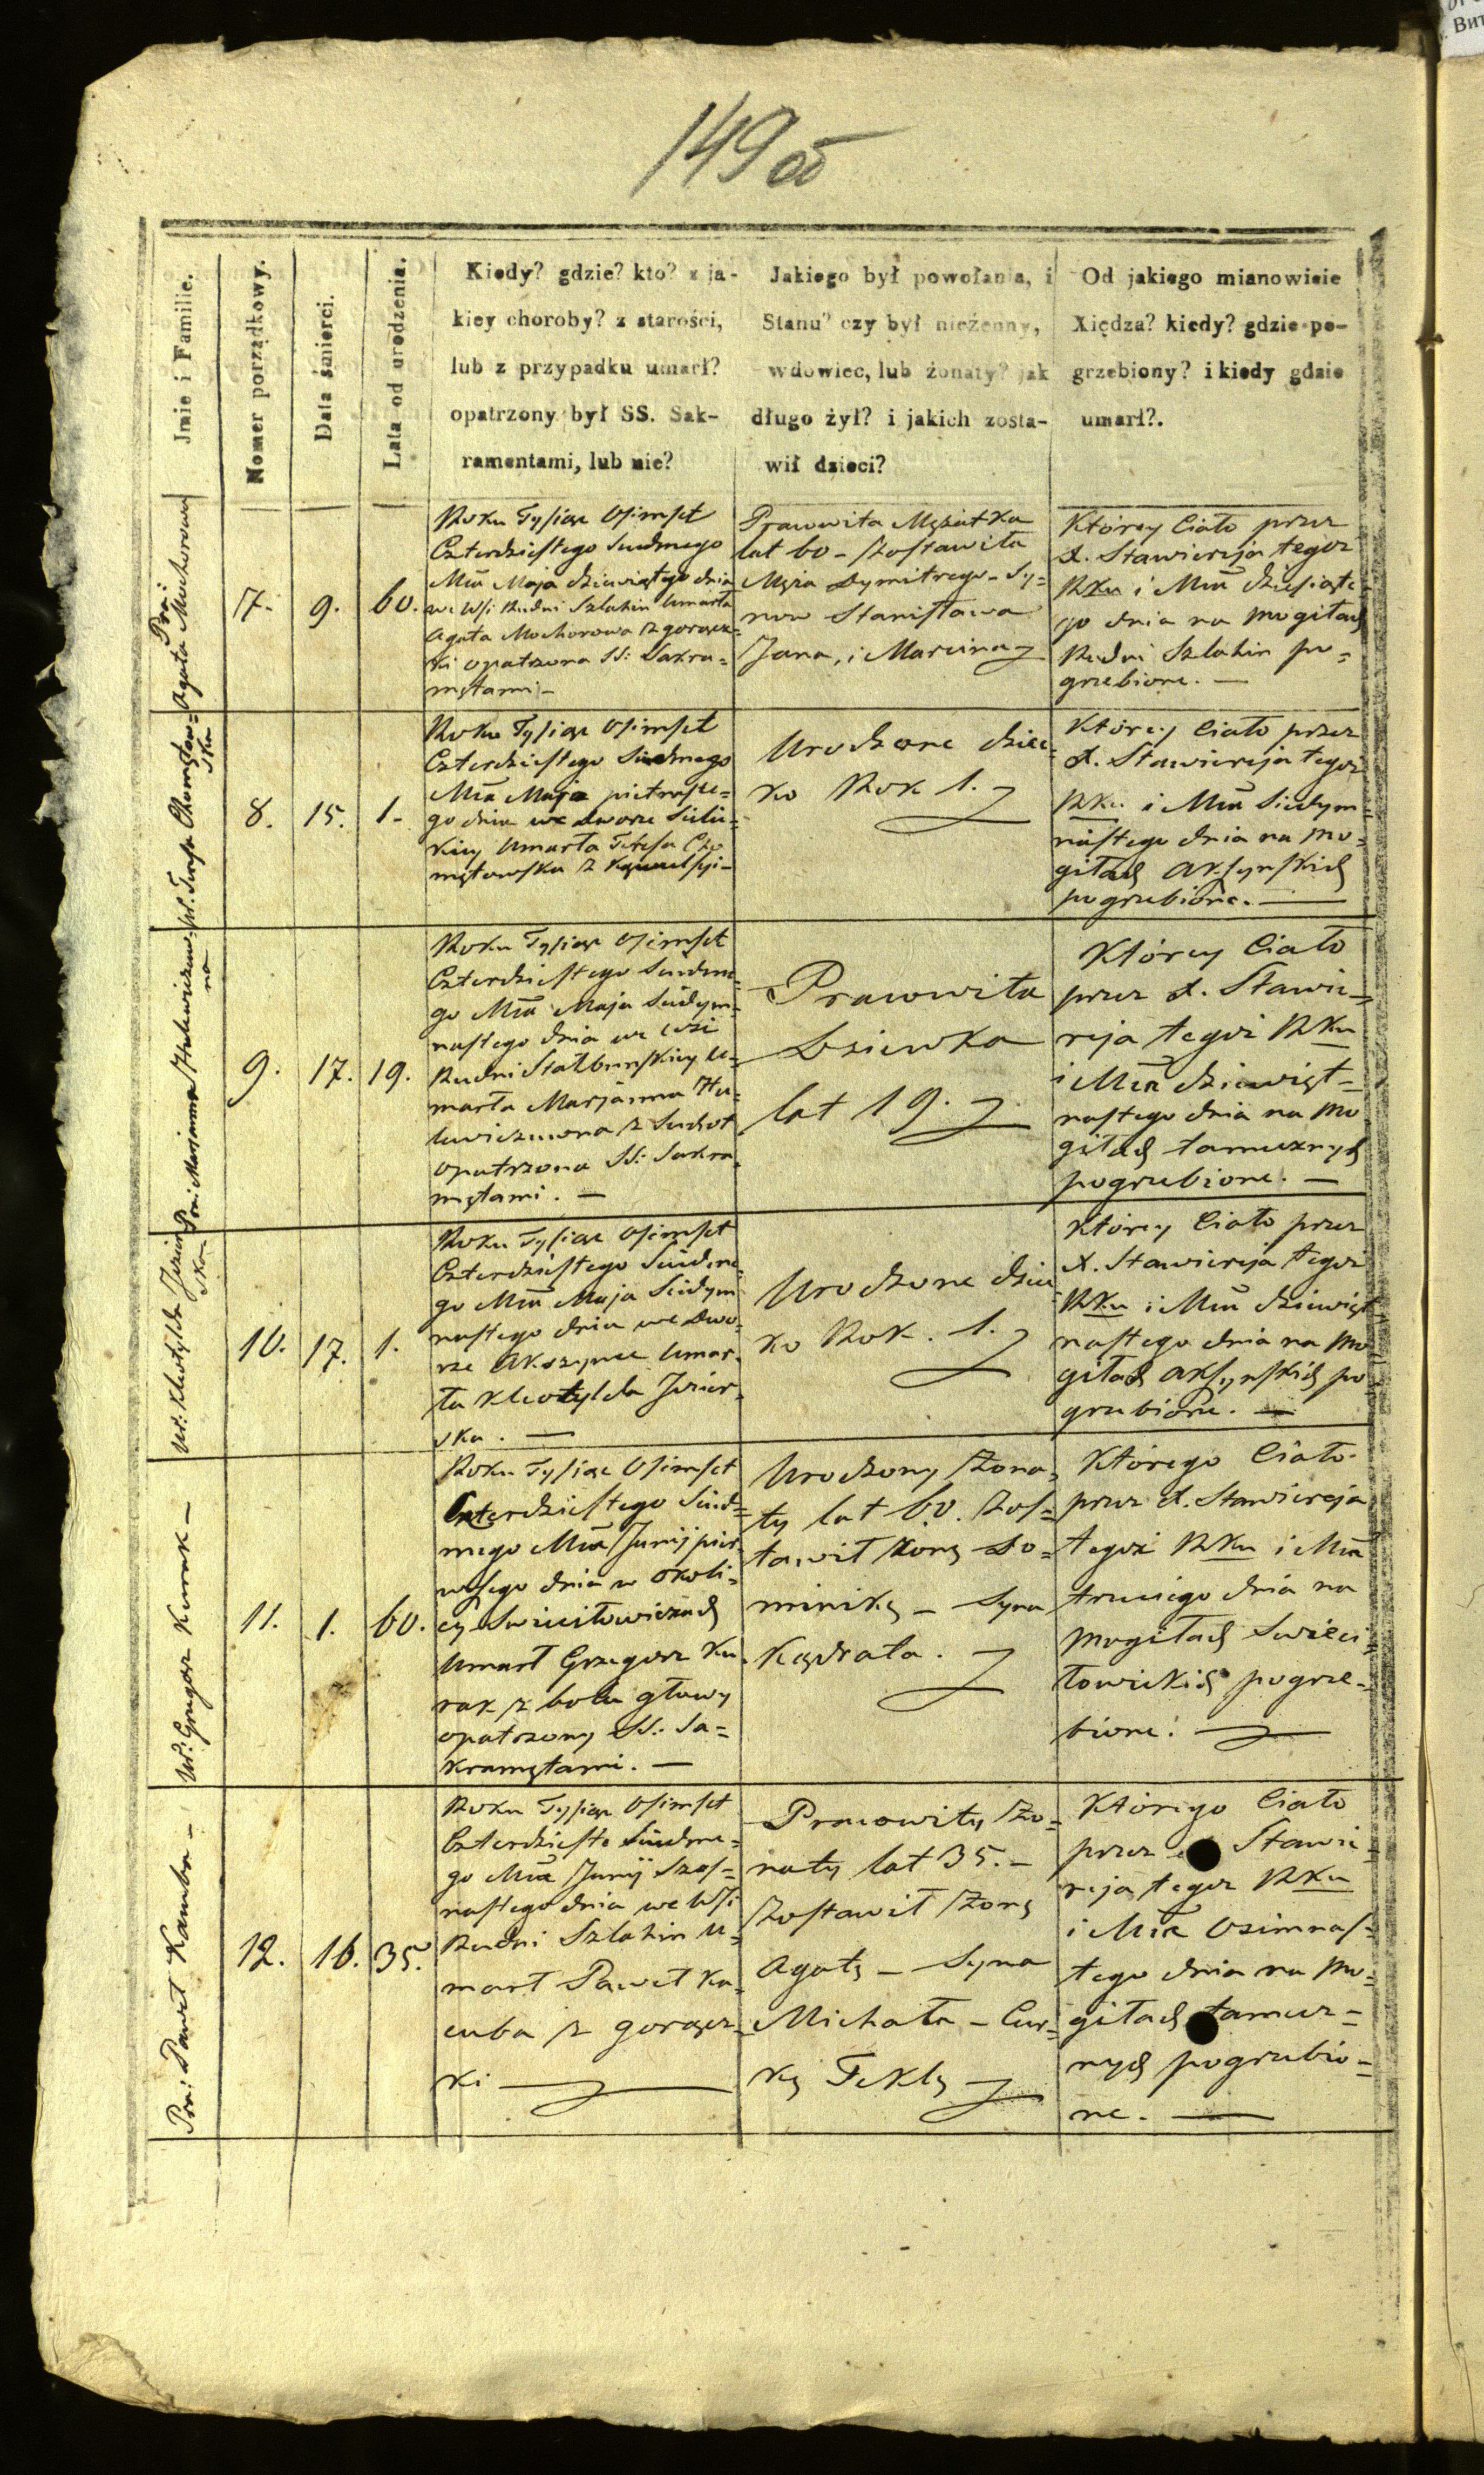 149 об
Imie i Familie.
Nomer porządkowy.
Data śmierci.
Lata od urodzenia.
Kiedy? gdzie? kto? z ja-
kiey choroby? z starości,
lub z przypadku umarł?
opatrzony był SS. Sak-
ramentami, lub nie?
Jakiego był powołania, i
Stanu? czy był nieżenny,
wdowiec, lub żonaty? jak
długo żył? i jakich zosta-
wił dzieci?
Od jakiego mianowicie
Xiędza? kiedy? gdzie po-
grzebiony? i kiedy gdzie
umarł?.
Pra:
Agata Mochorowa
7.
9.
60.
Roku Tysiąc Osimset
Czterdziestego Siudmego
Mca Maja dziewiątego dnia
we Wsi Rudni Szlahin Umarła
Agata Mochorowa z gorącz=
ki opatrzona SS: Sakra=
mętami –
Prawwita Mężatka
lat 60 – Zostawiła
Męża Dymitrego – Sy=
now Stanisława
Jana, i Marcina
Którey Ciało przez
X. Stawiereja tegoz
Rku i Mca dziesiąte=
go dnia na Mogiłach
Rudni Szlahin po=
grzebione. —
8.
15.
1.
Roku Tysiąc Osimset
Czterdziestego Siudmego
Mca Maja pietnaste=
go dnia we Dworze
Umarła Teresa Cho
mętowska z
Urodzone dziec=
ko Rok 1.
Którey Ciało przez
X. Stawiereja tegoż
Rku i Mca Siudym=
nastego dnia na Mo=
giłach Aksynskich
pogrzebione. —
9.
17.
19.
Roku Tysiąc Osimset
Czterdziestego Siudme=
go Mca Maja Siudym=
nastego dnia we Wsi
Rudni Stałbunskiey U=
marła Marjanna Hu=
lewiczuwna z Suchot
opatrzona SS: Sakra=
mętami. —
Prawwita
Dziewka
lat 19.
Którey Ciało
przez X. Stawie=
reja tegoż Rku
i Mca dziewięt=
nastego dnia na Mo
giłach tamecznych
pogrzebione. —
10.
17.
1.
Roku Tysiąc Osimset
Czterdziestego Siudme
go Mca Maja Siudym
nastego dnia we Dwo=
rze Akszynce Umar=
ła Kleotylda Jezier=
ska. —
Urodzone dziec
ko Rok. 1.
Którey Ciało przez
X. Stawiereja tegoż
Rku i Mca dziewięt
nastego dnia na Mo
giłach Aksynskich po=
grzebione. —
Ur: Grzegorz Kurak —
11.
1.
60.
Roku Tysiąc Osimset
Czterdziestego Siud=
mego Mca Junij pier
wszego dnia w Okoli=
cy Swieciłowiczach
Umarł Grzegorz Ku=
rak z bolu głowy
opatrzony SS: Sa=
kramętami. —
Urodzony Żona=
ty lat 60. Zos=
tawił Żonę Do=
minikę – Syna
Kądrata.
Którego Ciało
przez X. Stawiereja
tegoż Rku i Mca
trzeciego dnia na
Mogiłach Swieci=
łowickich pogrze=
bione. —
Pra: Paweł Kacuba —
12.
16.
35.
Roku Tysiąc Osimset
Czterdzieste Siudme=
go Mca Junij Szes=
nastego dnia we Wsi
Rudni Szlahin U=
marł Paweł Ka=
cuba z gorącz=
ki —
Pracowity Żo=
naty lat 35. –
Zostawił Żonę
Agatę – Syna
Michała – Cur=
kę Teklę
Którego Ciało
przez Stawie=
reja tegoz Rku
i Mca Osimnas=
tego dnia na Mo=
giłach tamecz=
nych pogrzebio=
ne. —